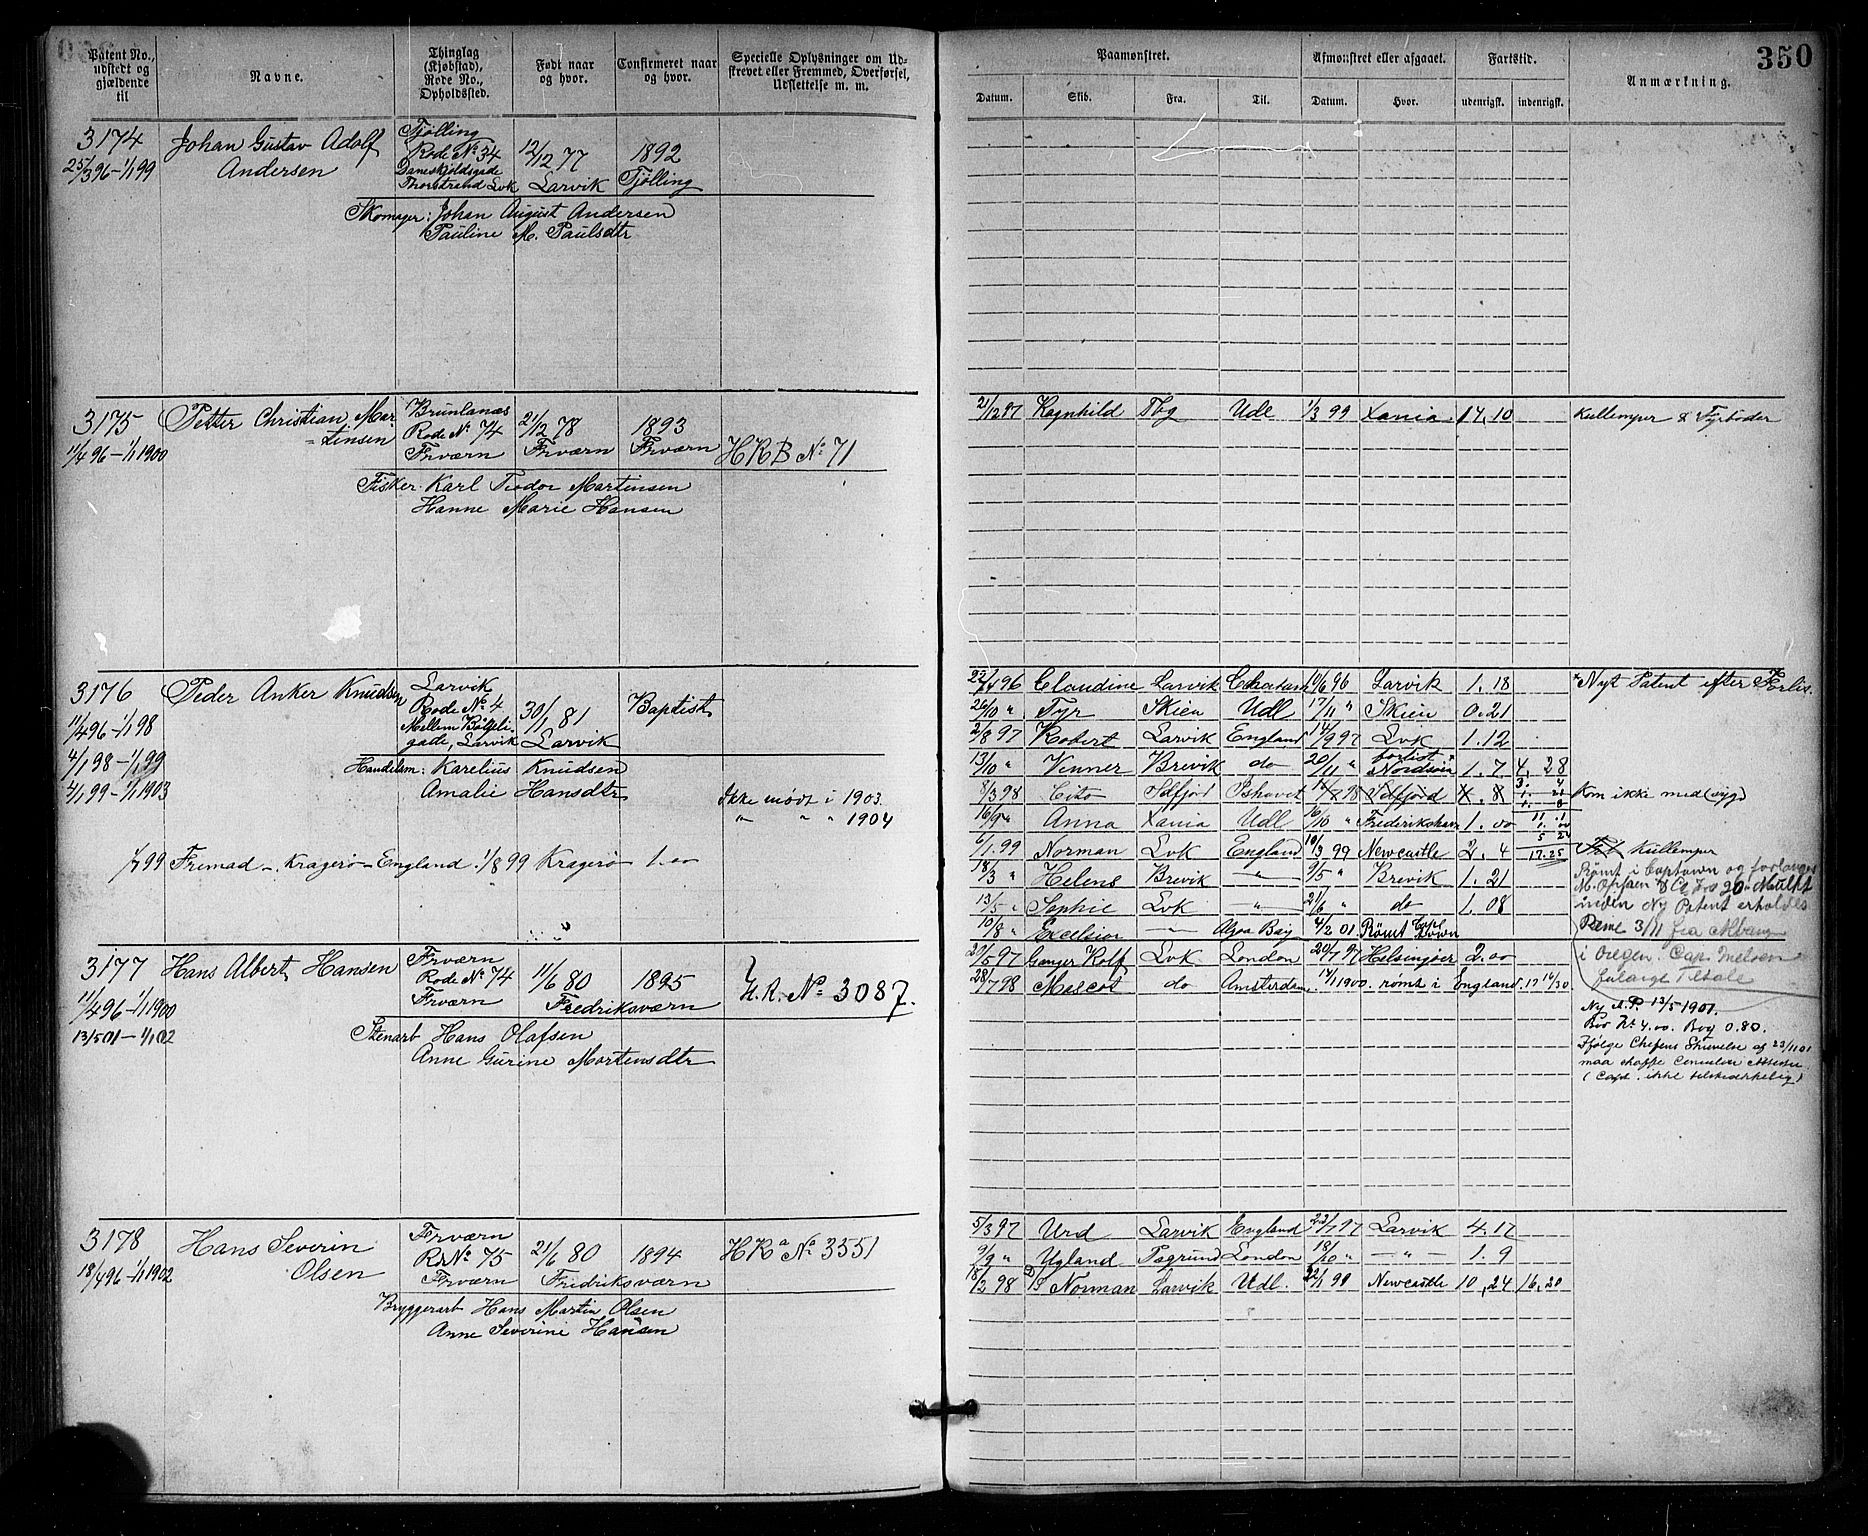 350
Patent No., udstedt og gjældende til
Navne.
Thinglag (Kjøbstad), Rode No., Opholdssted.
Født naar og hvor.
Confirmeret naar og hvor.
Specielle Oplysninger om Udskrevet eller Fremmed, Overførsel, Udslettelse m. m.
Paamønstret.
Afmønstret eller afgaaet.
Fartstid.
Anmærkning.
Datum. Skib. Fra. Til. Datum. Hvor. udenrigsk. indenrigsk.
3174 Johan Gustav Adolf Tjølling
25/3 96 - 1/1 99 Andersen Rode No 34 12/12 77 1892
Daneskjoldsgade
Thorstrand Lvk Larvik Tjølling
Skomager: Johan August Andersen
Pauline M. Paulsdtr
3175 Petter Christian Mar- Brunlanæs
tensen Rode No 74 21/12 78 1893
11/4 96 - 1/1 1900 Frværn Frværn Frværn HRB No 71
Fisker Karl Tiodor Martinsen
Hanne Marie Hansen
2/12 97 Ragnhild Tbg Udl 1/3 99 Xania 14.10 Kullemper & Fyrbøder
3176 Peder Anker Knudsen Larvik
Rode No 4 30/1 81 Baptist
11/4 96 - 1/1 98 Mellem Bøkeli-
gade, Larvik Larvik
4/1 98 - 1/1 99 Handelsm: Karelius Knudsen
4/1 99 - 1/1 1903 Amalie Hansdtr
Ikke mødt i 1903
" " " 1904
1/7 99 Fremad - Kragerø - England 1/8 99 Kragerø 1.00
22/4 96 Claudine Larvik 10/6 96 Larvik 1.18 Nyt Patent efter Forlis
26/10 " Tyr Skien Udl 17/11 " Skien 0.21
2/8 97 Robert Larvik England 14/9 97 Lvk 1.12
13/10 " Venner Brevik do 20/11 " forlist Nordsøen 1.7 4.28
8/3 98 Cito Idfjord Ishavet Idfjord Kom ikke med (syg)
16/9 " Anna Xania Udl 16/10 " Frederikshavn 1.00
6/1 99 Norman Lvk England 10/3 99 Newcastle 2.4 17.25 Kullemper
18/3 " Helens Brevik " 9/5 " Brevik 1.21 Rømt i Captown og forlanges
13/5 " Sophie Lvk " 21/6 " do 1.08 inden Ny Patent erholdes
10/8 " Excelsior " Algoa Bay 4/2 01 Rømt Cape Town
3177 Hans Albert Hansen Frværn
Rode No 74 11/6 80 1895
11/4 96 - 1/1 1900 Frværn Fredriksværn H.R. No 3087.
13/5 01 - 1/1 02 Stenarb Hans Olafsen
Anne Gurine Mortensdtr
22/5 97 Ganger Rolf Lvk London 20/7 97 Helsingøer 2.00
28/7 98 Mascot do Amsterdam 14/1 1900 rømt i England
Ny A.P. 13/5 1901.
3178 Hans Severin Frværn
Olsen Rd No 75 21/6 80 1894 HRa No 3551
18/4 96 - 1/1 1902 Frværn Fredriksværn
Bryggerarb Hans Martin Olsen
Anne Severine Hansen
5/3 97 Urd Larvik England 23/7 97 Larvik 4.17
9/9 " Ugland Psgrund London 18/10 " " 1.9
18/2 98 D/S Norman Larvik Udl. Newcastle 10,24 16,20